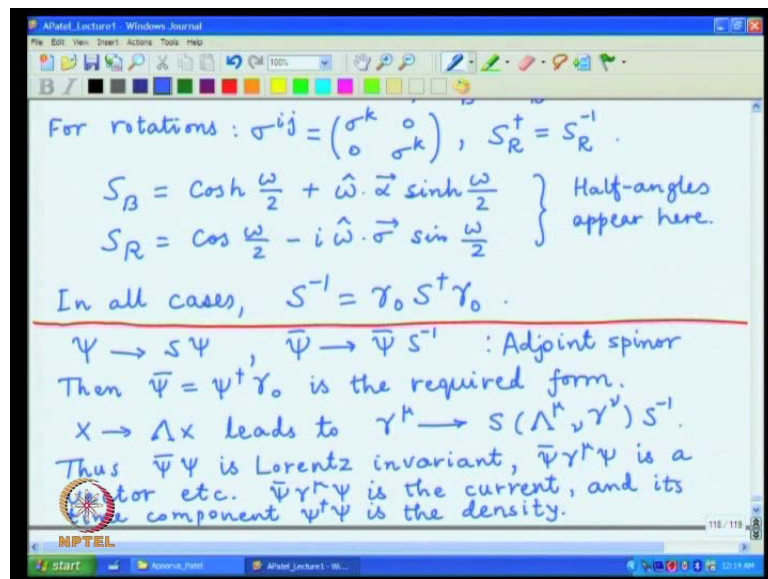 APatel_Lecture1 - Windows Journal
File Edit View Insert Actions Tools Help
100%
B I
For rotations : σ^{ij} = (σ^k 0
0 σ^k) , S_R^† = S_R^{-1} .
S_B = Cosh ω/2 + ω̂.α⃗ sinh ω/2 } Half-angles
S_R = Cos ω/2 - i ω̂.σ⃗ sin ω/2 appear here.
In all cases, S^{-1} = γ_0 S^† γ_0 .
Ψ → SΨ , Ψ̄ → Ψ̄ S^{-1} : Adjoint spinor
Then Ψ̄ = Ψ^†γ_0 is the required form.
X → Λx leads to γ^μ → S(Λ^μ_ν γ^ν) S^{-1}.
Thus Ψ̄Ψ is Lorentz invariant, Ψ̄γ^μΨ is a
vector etc. Ψ̄γ^μΨ is the current, and its
time component Ψ^†Ψ is the density.
118 / 119
NPTEL
start Apoorva_Patel APatel_Lecture1 - Wi... 12:14 AM